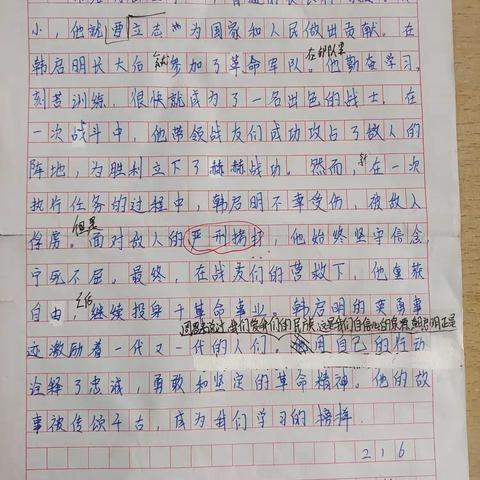 小，他就要立志"为国家和人民做出贡献。在
韩启明长大后就参加了革命军队。在部队里他勤奋学习，
刻苦训练，很快就成为了一名出色的战士。在
一次战斗中，他带领战友们成功攻占了敌人的
阵地，为胜利立下了赫赫战功。然而，在一次
执行任务的过程中，韩启明不幸受伤，被敌人
俘虏。但是面对敌人的严刑拷打，他始终坚守信念，
宁死不屈。最终，在战友们的营救下，他重获
自由 继续投身于革命事业。韩启明的英勇事
我们的民族 这是我们自信心的 韩启明正是
迹激励着一代又一代的人们。用自己的行动
诠释了忠诚，勇敢和坚定的革命精神。他的故
事被传颂千古，成为我们学习的榜样
216